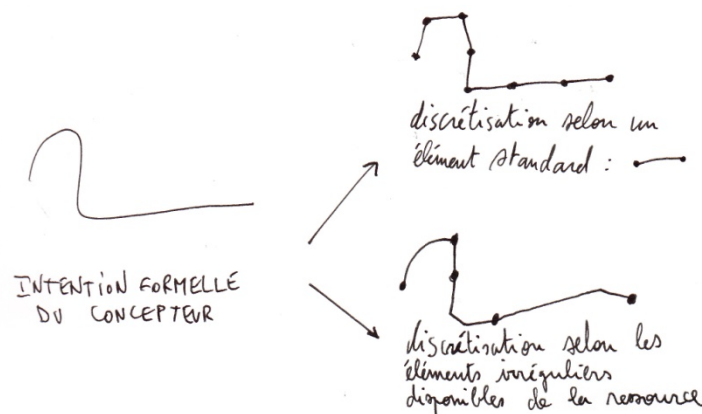 INTENTION FORMELLE
DU CONCEPTEUR
discrétisation selon un
élément standard :
discrétisation selon les
éléments irréguliers
disponibles de la ressource